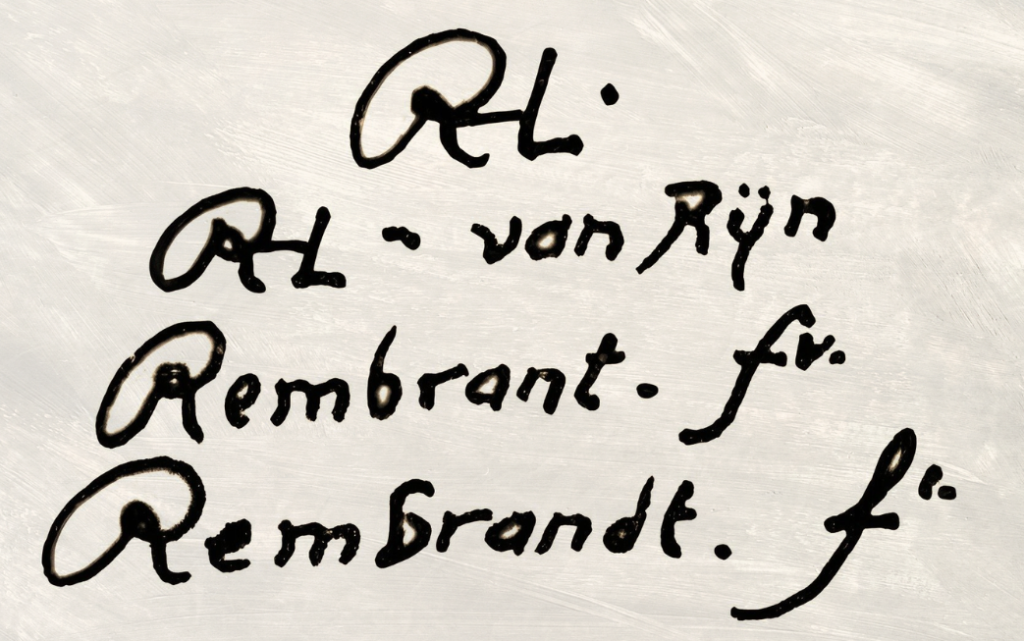 RHL.
RHL - van Rÿn
Rembrant. fv.
Rembrandt. f